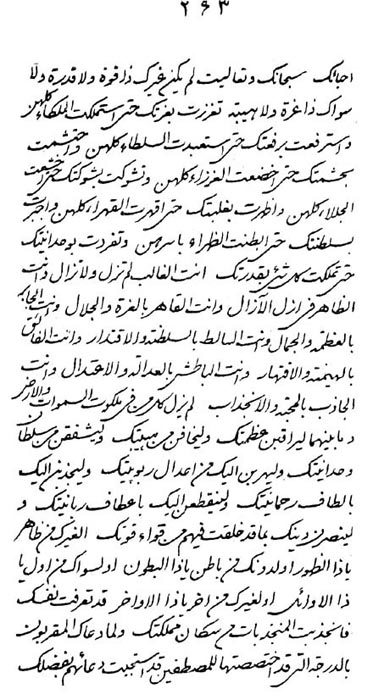 ٢٦٣
احبائك سبحانك وتعاليت لم يكن غيرك ذا قوة ولا قدرة ولا
سواك ذا عزة ولا هيبته تعززت بعزتك حتى استملكت الملكاء كلهن
واسترفعت برفعتك حتى استعبدت السلطاء كلهن واحتشمت
بحشمتك حتى اخضعت العززاء كلهن وتشوكت بشوكتك حتى اخشعت
الجللاء كلهن واظهرت بغلبتك حتى اقهرت القهراء كلهن واجبرت
بسلطنتك حتى ابطنت الظهراء باسرهن وتفردت بوحدانيتك
حتى تملكت كل شئ بقدرتك انت الغالب لم تزل ولا تزال وانت
الظاهر فى ازل الآزال وانت القاهر بالعزة والجلال وانت الجابر
بالعظمة والجمال وانت السالط بالسلطنة والاقتدار وانت الفائق
بالهيمنة والاقتهار وانت الباطش بالعدالة والاعتدال وانت
الجاذب بالمحبة والانجذاب لم يزل كل من فى ملكوت السموات والارض
وما بينهما ليراقبن عظمتك وليخافن من هيبتك وليشفقن من سلطان
وحدانيتك وليهربن اليك من اعدال ربوبيتك وليجذبن اليك
بالطاف رحمانيتك ولينقطعن اليك باعطاف ربانيتك و
لينصرن دينك بما قد خلقت فيهم من قواء قوتك الغيرك من ظاهر
يا ذا الظهور او لدونك من باطن يا ذا البطون او لسواك من اول يا
ذا الاوائل او لغيرك من اخر يا ذا الاواخر قد تعرفت بنفسك
فانجذبت المنجذبات من سكان مملكتك ولما دعاك المقربون
بالدرجة التى قد اختصصتها للمصطفين قد استجبت دعائهم بفضلك